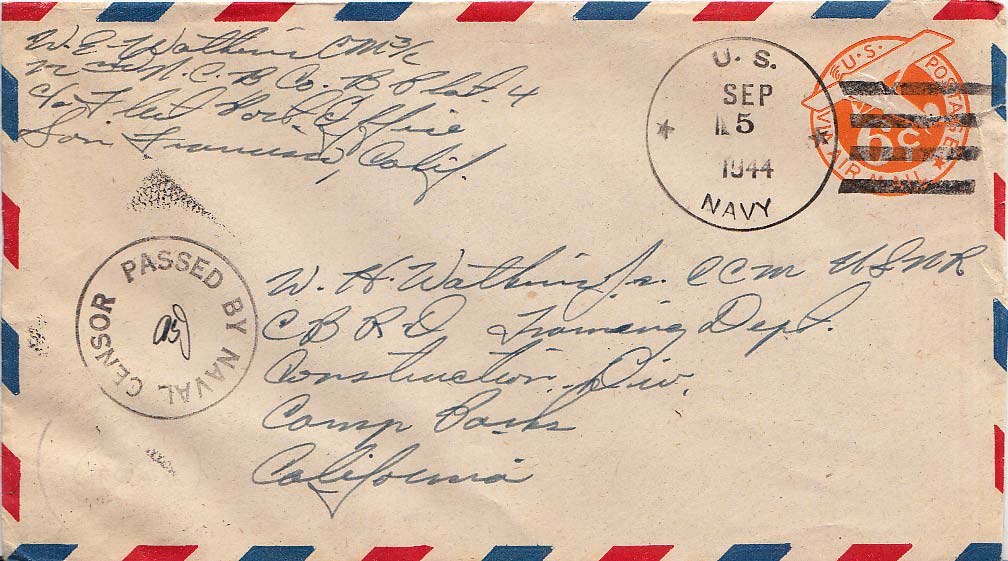 W. E. Watkins CM3/c
N. C. B. Co. B Plat. 4
c/o Fleet Post Office
San Francisco, Calif.
U. S.
SEP
5
1944
NAVY
U.S. POSTAGE
6c
VIA AIR MAIL
PASSED BY NAVAL CENSOR
W. H. Watkins Jr. CCM USNR
C B R D Training Dept.
Construction Div.
Camp Parks
California